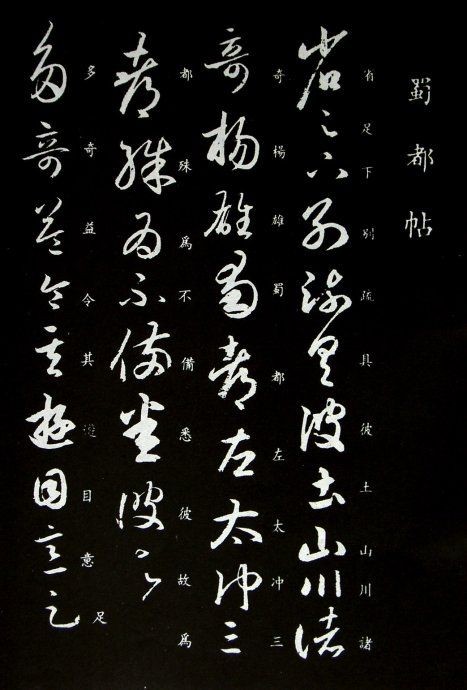 蜀都帖
省足下別疏具彼土山川諸
省足下別疏具彼土山川諸
奇楊雄蜀都左太冲三
奇楊雄蜀都左太冲三
都殊爲不備悉彼故爲
都殊爲不備悉彼故爲
多奇益令其遊目意足
多奇益令其遊目意足